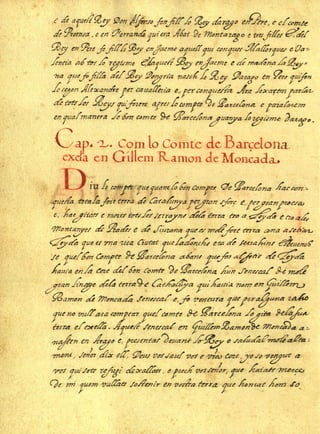 e de aquell Rey Don Alfonso son fill lo Rey darago en Pere, e el comte
de Provença, e en Ferrando qui era Abat de Montarago e tres filles e del
Rey en Pere fo fill lo Rey en Jacme aquell qui conques Mallorques e Va-
lencia ab tot lo regisme e la quell Rey en Jacme e de madona la Rey-
na que fo filla del Rey Dongria nasch lo Rey Darago en Pere qui fon
lo segon Alexandre per cavalleria e per conquesta. Ara lexarem parlar
de tots los Reys qui foren apres lo compte de Barcelona e parlarem
en qual manera lo bon comte de Barcelona guanya lo regisme Darago.
Cap. 2. Com lo Comte de Barçelona
exelá en Gillem Ramon de Moncada.
Diu lo compte que quant lo bon compte de Barcelona hac con-
questa tota la sua terra de Catalunya per gran esforc e per gran proesa
e hac gitats e morts tots los serrayns dela terra tro a Leyda e tro als
montanyes de Prades e de Siurana que es molt fort terra ana asetiar
Leyda que es una rica Ciutat que ladonchs era de serrahins e
se quel bon Compte de Barcelona abans que fos al seti de Leyda
havia en la cort del bon Comte de Barcelona hun Senescal de molt
gran linatge dela terra de Cathalunya qui havia nom en Guillem
Ramon de Moncada Senescal e fo ventura que per alguna raho
que no vull ara comptar quel comte de Barcelona lo gita dela sua
terra el exella. Aquell Senescal en Guillem Ramon de Moncada a-
nassen en Arago e presentas devant lo Rey e saludal molt alta-
ment, senor dix ell, Deus vos saul vos e vostra cort, yo so vengut a
vos qui sots refugi de exellats, e prech vos senor, que haiats merce
de mi quem vullats sostenir en vostra terra que honrat hom so.